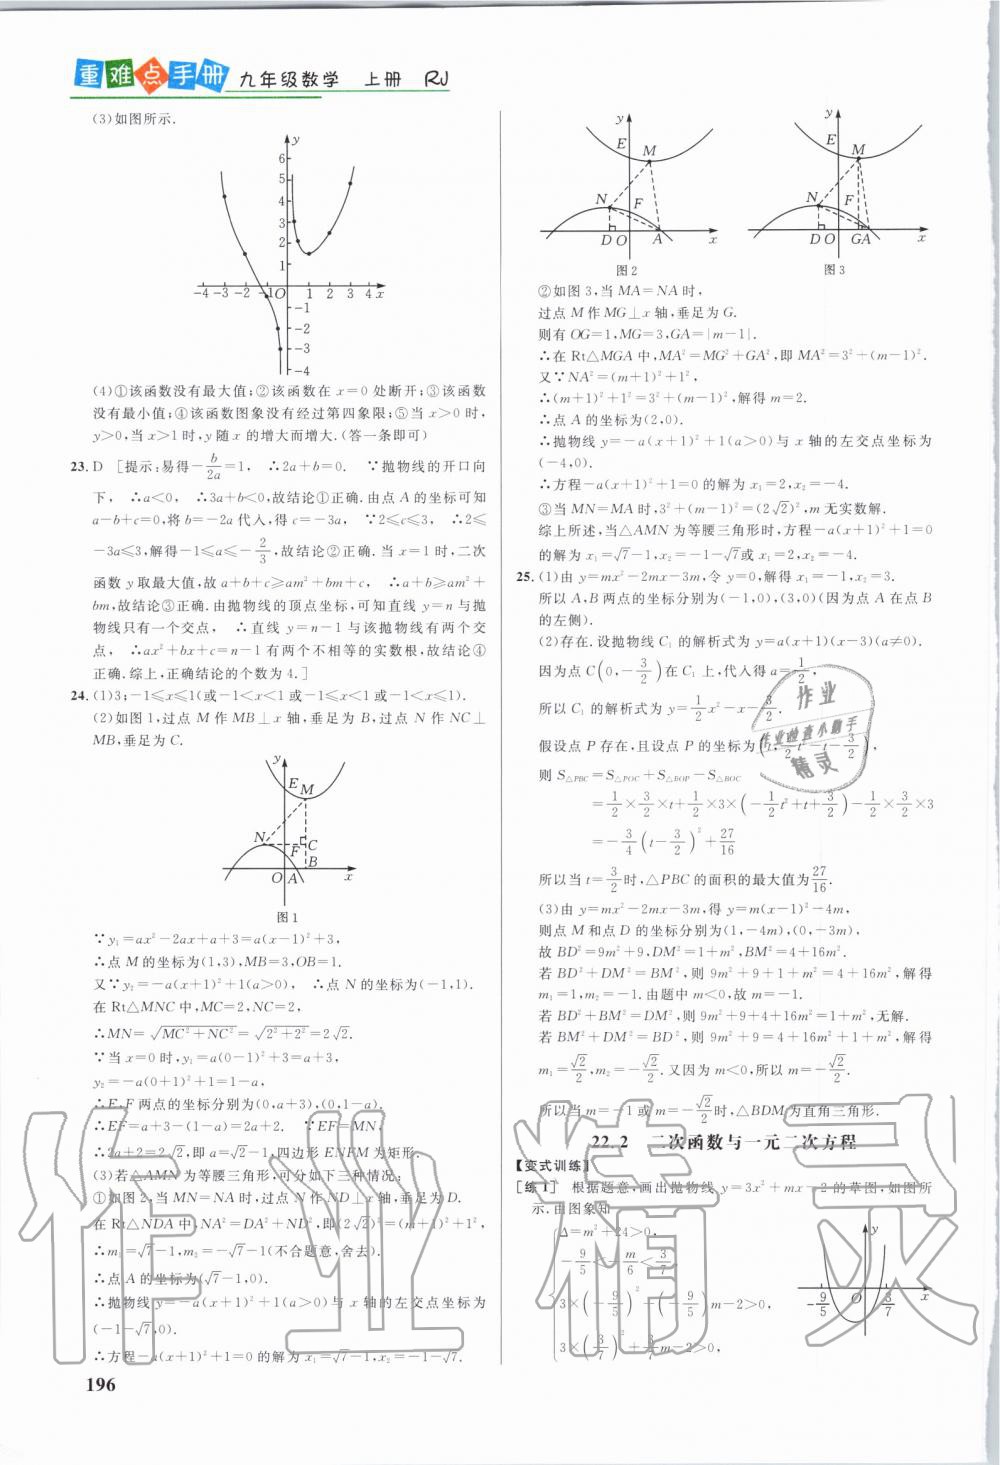 重难点手册 九年级数学 上册 RJ
(3)如图所示.
y
6
5
4
3
2
1
-4 -3 -2 -1 O 1 2 3 4 x
-1
-2
-3
-4
(4)①该函数没有最大值;②该函数在 x=0 处断开;③该函数
没有最小值;④该函数图象没有经过第四象限;⑤当 x>0 时,
y>0,当 x>1 时,y 随 x 的增大而增大.(答一条即可)
23. D [提示:易得-b/2a=1, ∴2a+b=0. ∵抛物线的开口向
下, ∴a<0, ∴3a+b<0,故结论①正确.由点 A 的坐标可知
a-b+c=0,将 b=-2a 代入,得 c=-3a, ∵2≤c≤3, ∴2≤
-3a≤3,解得-1≤a≤-2/3,故结论②正确.当 x=1 时,二次
函数 y 取最大值,故 a+b+c≥am²+bm+c, ∴a+b≥am²+
bm,故结论③正确.由抛物线的顶点坐标,可知直线 y=n 与抛
物线只有一个交点, ∴直线 y=n-1 与该抛物线有两个交
点, ∴ax²+bx+c=n-1 有两个不相等的实数根,故结论④
正确.综上,正确结论的个数为 4.]
24. (1)3;-1≤x≤1(或-1<x<1 或-1≤x<1 或-1<x≤1).
(2)如图 1,过点 M 作 MB⊥x 轴,垂足为 B,过点 N 作 NC⊥
MB,垂足为 C.
y
E M
N F C
B
O A x
图 1
∵y₁=ax²-2ax+a+3=a(x-1)²+3,
∴点 M 的坐标为(1,3),MB=3,OB=1.
又∵y₂=-a(x+1)²+1(a>0), ∴点 N 的坐标为(-1,1).
在 Rt△MNC 中,MC=2,NC=2,
∴MN=√(MC²+NC²)=√(2²+2²)=2√2.
∵当 x=0 时,y₁=a(0-1)²+3=a+3,
y₂=-a(0+1)²+1=1-a,
∴E,F 两点的坐标分别为(0,a+3),(0,1-a).
∴EF=a+3-(1-a)=2a+2. ∵EF=MN,
∴2a+2=2√2,即 a=√2-1,四边形 ENFM 为矩形.
(3)若△AMN 为等腰三角形,可分如下三种情况:
①如图 2,当 MN=NA 时,过点 N 作 ND⊥x 轴,垂足为 D.
在 Rt△NDA 中,NA²=DA²+ND²,即(2√2)²=(m+1)²+1²,
∴m₁=√7-1,m₂=-√7-1(不合题意,舍去).
∴点 A 的坐标为(√7-1,0).
∴抛物线 y=-a(x+1)²+1(a>0)与 x 轴的左交点坐标为
(-1-√7,0).
∴方程-a(x+1)²+1=0 的解为 x₁=√7-1,x₂=-1-√7.
196
y
E M
N F
D O A x
图 2
y
E M
N F
D O G A x
图 3
②如图 3,当 MA=NA 时,
过点 M 作 MG⊥x 轴,垂足为 G.
则有 OG=1,MG=3,GA=|m-1|.
∴在 Rt△MGA 中,MA²=MG²+GA²,即 MA²=3²+(m-1)².
又∵NA²=(m+1)²+1²,
∴(m+1)²+1²=3²+(m-1)²,解得 m=2.
∴点 A 的坐标为(2,0).
∴抛物线 y=-a(x+1)²+1(a>0)与 x 轴的左交点坐标为
(-4,0).
∴方程-a(x+1)²+1=0 的解为 x₁=2,x₂=-4.
③当 MN=MA 时,3²+(m-1)²=(2√2)²,m 无实数解.
综上所述,当△AMN 为等腰三角形时,方程-a(x+1)²+1=0
的解为 x₁=√7-1,x₂=-1-√7或 x₁=2,x₂=-4.
25. (1)由 y=mx²-2mx-3m,令 y=0,解得 x₁=-1,x₂=3.
所以 A,B 两点的坐标分别为(-1,0),(3,0)(因为点 A 在点 B
的左侧).
(2)存在.设抛物线 C₁ 的解析式为 y=a(x+1)(x-3)(a≠0).
因为点 C(0,-3/2)在 C₁ 上,代入得 a=1/2,
所以 C₁ 的解析式为 y=1/2x²-x-3/2.
假设点 P 存在,且设点 P 的坐标为(t,1/2t²-t-3/2),
则 S△PBC=S△POC+S△BOP-S△BOC
=1/2×3/2×t+1/2×3×(-1/2t²+t+3/2)-1/2×3/2×3
=-3/4(t-3/2)²+27/16
所以当 t=3/2时,△PBC 的面积的最大值为27/16.
(3)由 y=mx²-2mx-3m,得 y=m(x-1)²-4m,
则点 M 和点 D 的坐标分别为(1,-4m),(0,-3m),
故 BD²=9m²+9,DM²=1+m²,BM²=4+16m².
若 BD²+DM²=BM²,则 9m²+9+1+m²=4+16m²,解得
m₁=1,m₂=-1.由题中 m<0,故 m=-1.
若 BD²+BM²=DM²,则 9m²+9+4+16m²=1+m²,无解.
若 BM²+DM²=BD²,则 9m²+9=4+16m²+1+m²,解得
m₁=√2/2,m₂=-√2/2.又因为 m<0,所以 m=-√2/2.
所以当 m=-1 或 m=-√2/2时,△BDM 为直角三角形.
22.2 二次函数与一元二次方程
【变式训练】
[练 1] 根据题意,画出抛物线 y=3x²+mx-2 的草图,如图所
示.由图象知
Δ=m²+24>0,
-9/5<-m/6<3/7
3×(-9/5)²+(-9/5)m-2>0,
3×(3/7)²+3/7m-2>0,
y
-9/5 O 3/7 x
作业
作业检查小助手
精灵
作业精灵